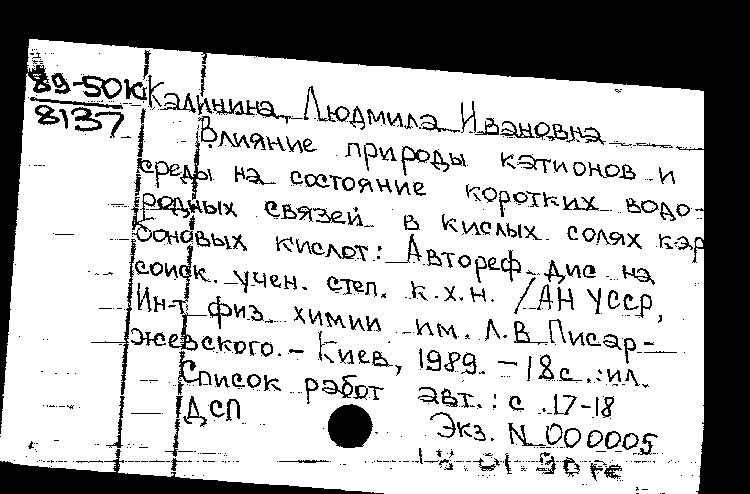 89-50к
8137
Калинина, Людмила Ивановна
Влияние природы катионов и
среды на состояние коротких водо-
родных связей в кислых солях кар
боновых кислот: Автореф. дис на
соиск. учен. степ. к.х.н. /АН УССР,
Ин-т физ. химии им. Л.В Писар-
жевского. – Киев, 1989. – 18с.:ил.
Список работ авт.: с.17-18
ДСП
Экз. N 000005
18.01.90